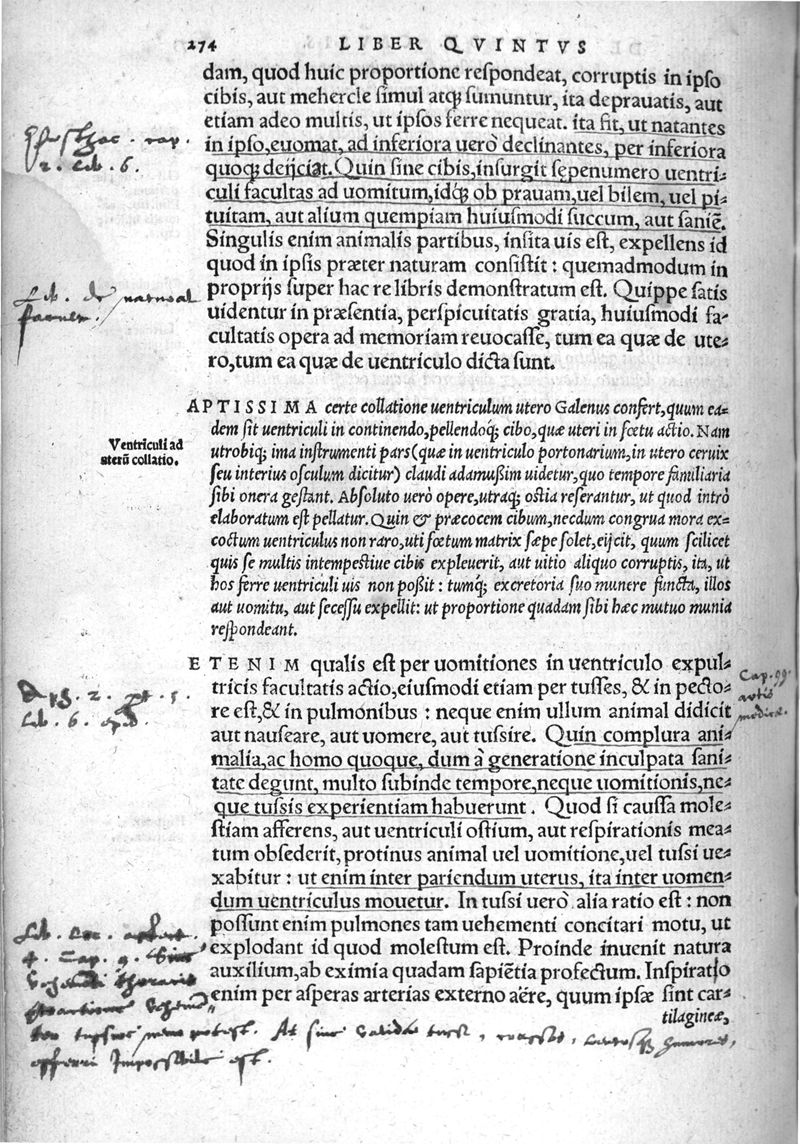 274 LIBER QVINTVS
dam, quod huic proportione respondeat, corruptis in ipso
cibis, aut mehercle simul atq; sumuntur, ita deprauatis, aut
etiam adeo multis, ut ipsos ferre nequeat. ita fit, ut natantes
in ipso, euomat, ad inferiora uerò declinantes, per inferiora
quoq; deijciat. Quin sine cibis, insurgit sępenumero uentri-
culi facultas ad uomitum, idq; ob prauam, uel bilem, uel pi-
tuitam, aut alium quempiam huiusmodi succum, aut saniē.
Singulis enim animalis partibus, insita uis est, expellens id
quod in ipsis præter naturam consistit: quemadmodum in
proprijs super hac re libris demonstratum est. Quippe satis
uidentur in præsentia, perspicuitatis gratia, huiusmodi fa-
cultatis opera ad memoriam reuocasse, tum ea quæ de ute-
ro, tum ea quæ de uentriculo dicta sunt.
cap.
2. Lib. 6.
Lib. de
APTISSIMA certe collatione uentriculum utero Galenus confert, quum ea-
dem sit uentriculi in continendo, pellendoq; cibo, quæ uteri in fœtu actio. Nam
utrobiq; ima instrumenti pars (quæ in uentriculo portonarium, in utero ceruix
seu interius osculum dicitur) claudi adamußim uidetur, quo tempore familiaria
sibi onera gestant. Absoluto uerò opere, utraq; ostia reserantur, ut quod intrò
elaboratum est pellatur. Quin & præcocem cibum, necdum congrua mora ex-
coctum uentriculus non raro, uti fœtum matrix sæpe solet, eijcit, quum scilicet
quis se multis intempestiue cibis expleuerit, aut uitio aliquo corruptis, ita, ut
hos ferre uentriculi uis non poßit: tumq; excretoria suo munere functa, illos
aut uomitu, aut secessu expellit: ut proportione quadam sibi hæc mutuo munia
respondeant.
Ventriculi ad
uterū collatio.
ETENIM qualis est per uomitiones in uentriculo expul-
tricis facultatis actio, eiusmodi etiam per tusses, & in pecto-
re est, & in pulmonibus: neque enim ullum animal didicit
aut nauseare, aut uomere, aut tussire. Quin complura ani-
malia, ac homo quoque, dum à generatione inculpata sani-
tate degunt, multo subinde tempore, neque uomitionis, ne-
que tussis experientiam habuerunt. Quod si caussa mole-
stiam afferens, aut uentriculi ostium, aut respirationis mea-
tum obsederit, protinus animal uel uomitione, uel tussi ue-
xabitur: ut enim inter pariendum uterus, ita inter uomen-
dum uentriculus mouetur. In tussi uerò alia ratio est: non
possunt enim pulmones tam uehementi concitari motu, ut
explodant id quod molestum est. Proinde inuenit natura
auxilium, ab eximia quadam sapiētia profectum. Inspiratio
enim per asperas arterias externo aëre, quum ipsæ sint car-
tilagineæ,
2. 5.
Lib. 6.
Cap. 99.
artis
Lib. Loc. affect.
4. Cap. 9. Sine
potest. At sine valida tussi, crassos,
Impossibile est.